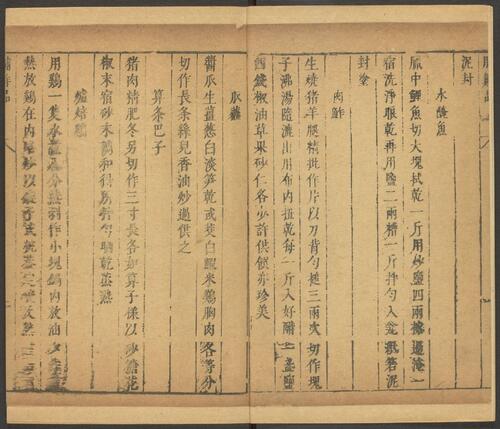 泥封
水醃魚
臘中鯉魚切大塊拭乾一斤用炒鹽四兩擦過淹一
宿洗淨眼乾再用鹽二兩糟一斤拌勻入瓮紙箬泥
封塗
肉鮓
生燒猪羊腿精批作片以刀背勻搥三兩次切作塊
子沸湯隨漉出用布內扭乾每一斤入好醋一盞鹽
四錢椒油草果砂仁各少許供饌亦珍美
瓜虀
醬瓜生薑葱白淡笋乾或茭白蝦米鷄胸肉各等分
切作長條絲兒香油炒過供之
算条巴子
猪肉精肥各另切作三寸長各如算子樣以砂糖花
椒末宿砂末調和得所拌勻晒乾蒸熟
爐焙鷄
用鷄一隻水煮八分熟剁作小塊鍋內放油少許燒
熱放鷄在內畧炒以鏇子或椀蓋定燒及熱